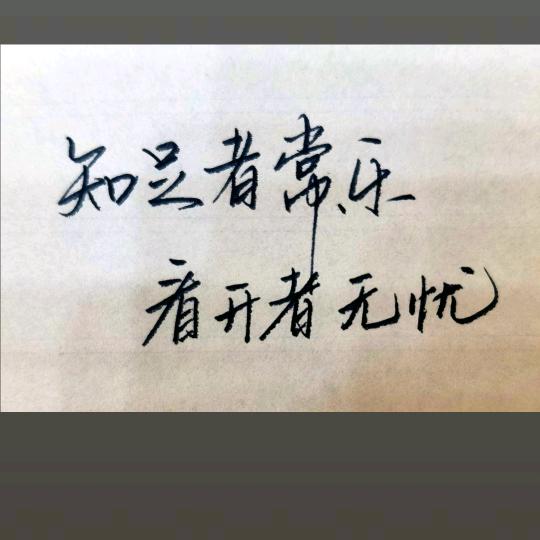 知足者常乐
看开者无忧